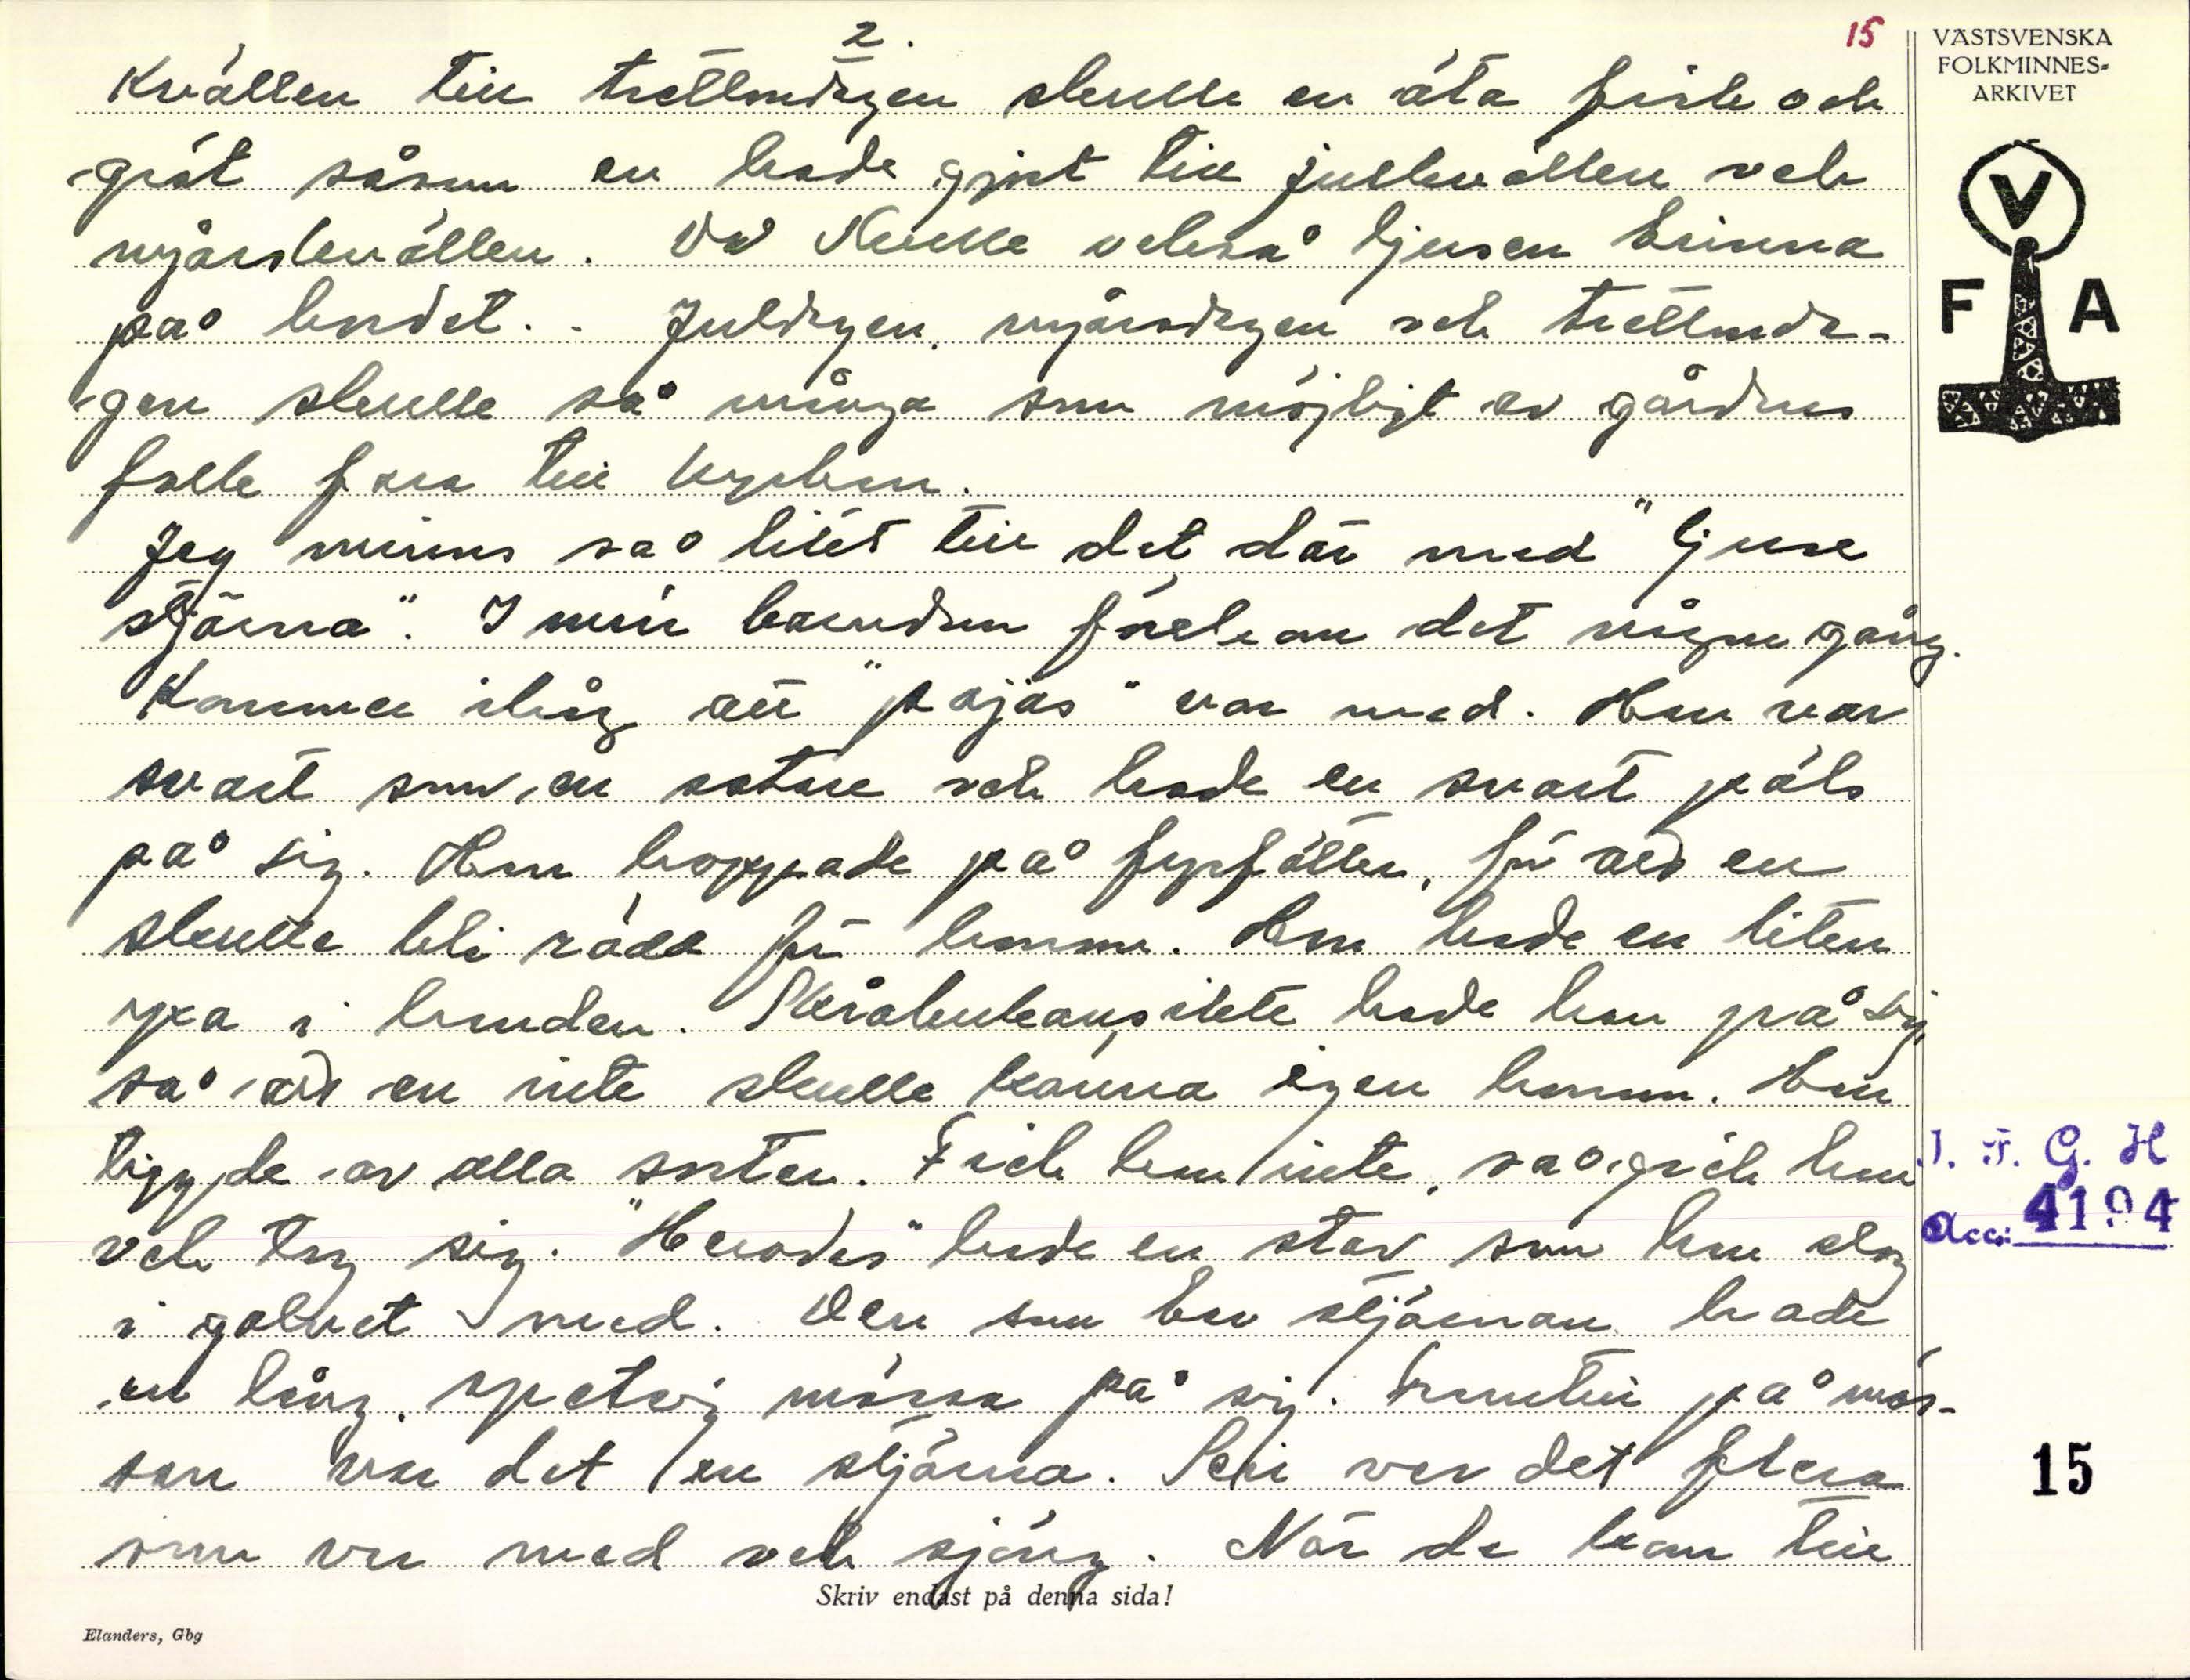 2.
15
VÄSTSVENSKA
FOLKMINNES-
ARKIVET
V
F A
Kvällen till trettondagen skulle en äta fisk och
gröt såsom en hade gjort till julkvällen och
nyårskvällen. Då skulle också ljusen brinna
på bordet. - Juldagen, nyårsdagen och trettonda-
gen skulle så många som möjligt av gårdens
folk fara till kyrkan.
Jag minns så litet till det där med "ljuse
stjärna". I min barndom förekom det någon gång.
Kommer ihåg att "pajas" var med. Han var
svart som en sotare och hade en svart päls
på sig. Han hoppade på fyrfötter, för att en
skulle bli rädd för honom. Han hade en liten
yxa i handen. Skråbukansikte hade han på sig,
så att en inte skulle känna igen honom. Han
tiggde av alla sorter. Fick han inte, så gick han
och tog sig. "Herodes" hade en stav som han slog
i golvet med. Den som bar stjärnan hade
en lång, spetsig mössa på sig. Framtill på mös-
san var det en stjärna. Sen var det flera
som var med och sjöng. När de kom till
J. F. G. H
Acc: 4194
15
Skriv endast på denna sida!
Elanders, Gbg